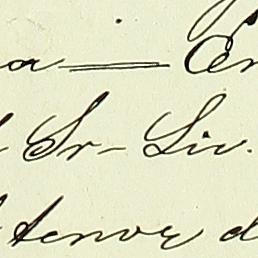 a = En
Sr - Liv.
tenor d